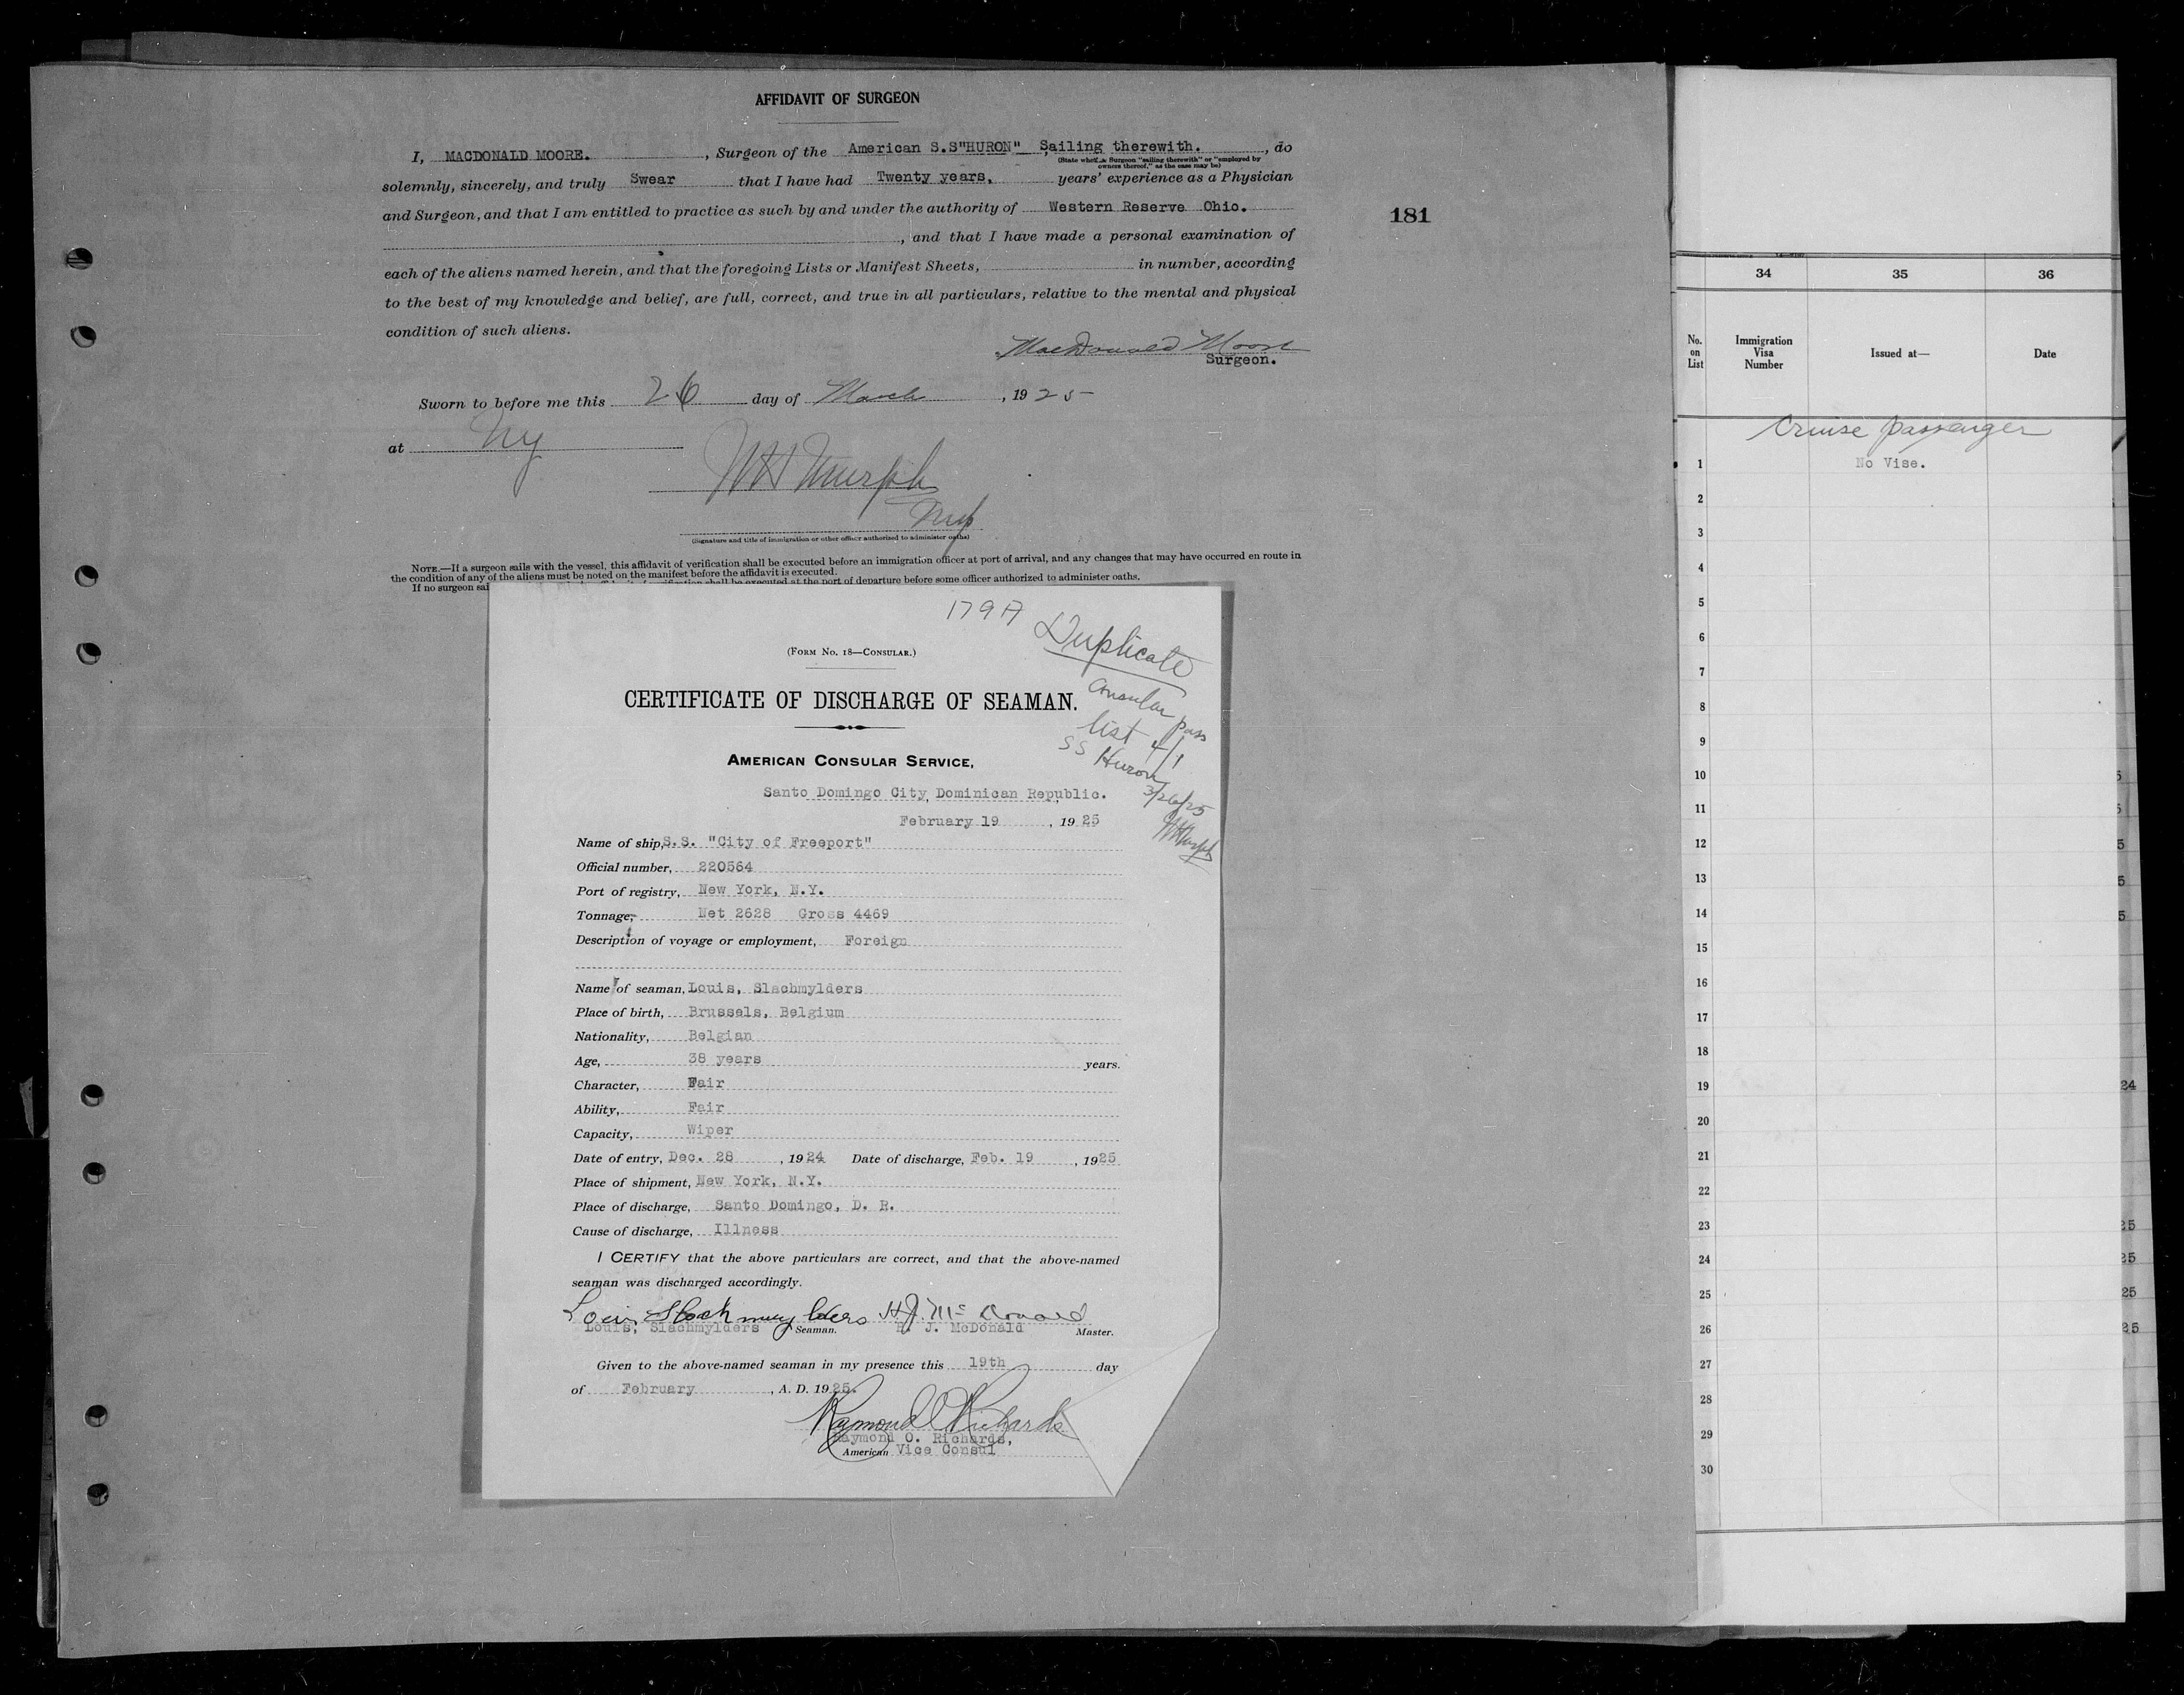 AFFIDAVIT OF SURGEON
I, MACDONALD MOORE. , Surgeon of the American S.S"HURON" Sailing therewith. , do
(State whether a Surgeon "sailing therewith" or "employed by
owners thereof," as the case may be)
solemnly, sincerely, and truly Swear that I have had Twenty years. years' experience as a Physician
and Surgeon, and that I am entitled to practice as such by and under the authority of Western Reserve Ohio.
, and that I have made a personal examination of
each of the aliens named herein, and that the foregoing Lists or Manifest Sheets, in number, according
to the best of my knowledge and belief, are full, correct, and true in all particulars, relative to the mental and physical
condition of such aliens.
MacDonald Moore
Surgeon.
Sworn to before me this 26 day of March , 1925
at NY
WH Murph
(Signature and title of immigration or other officer authorized to administer oaths)
NOTE.—If a surgeon sails with the vessel, this affidavit of verification shall be executed before an immigration officer at port of arrival, and any changes that may have occurred en route in
the condition of any of the aliens must be noted on the manifest before the affidavit is executed.
If no surgeon sai shall be executed at the port of departure before some officer authorized to administer oaths.
181
179A
Duplicate
Consular pass
list 4/1
SS Huron
3/26/25
WHMurph
(FORM NO. 18—CONSULAR.)
CERTIFICATE OF DISCHARGE OF SEAMAN.
AMERICAN CONSULAR SERVICE,
Santo Domingo City, Dominican Republic.
February 19 , 1925
Name of ship, S.S. "City of Freeport"
Official number, 220564
Port of registry, New York, N.Y.
Tonnage, Net 2628 Gross 4469
Description of voyage or employment, Foreign
Name of seaman, Louis, Slachmylders
Place of birth, Brussels, Belgium
Nationality, Belgian
Age, 38 years years.
Character, Fair
Ability, Fair
Capacity, Wiper
Date of entry, Dec. 28 , 1924 Date of discharge, Feb. 19 , 1925
Place of shipment, New York, N.Y.
Place of discharge, Santo Domingo, D. R.
Cause of discharge, Illness
I CERTIFY that the above particulars are correct, and that the above-named
seaman was discharged accordingly.
Louis Slachmuylders H.J. McDonald
Louis, Slachmylders Seaman. H. J. McDonald Master.
Given to the above-named seaman in my presence this 19th day
of February , A. D. 1925.
Raymond O Richards
Raymond O. Richards,
American Vice Consul
34 35 36
No. on List
Immigration Visa Number
Issued at—
Date
Cruise passenger
1 No Vise.
2
3
4
5
6
7
8
9
10
11
12
13
14
15
16
17
18
19
20
21
22
23
24
25
26
27
28
29
30
5
5
5
5
5
24
25
25
25
25